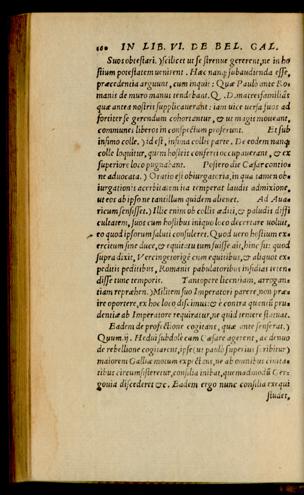 160 IN LIB. VI. DE BEL. GAL.
Suos obtestari. Vscilicet ut se strenue gererent, ne in ho
stium potestatem uenirent. Hæc nanq; subaudienda esse,
præcedentia arguunt, cum inquit: Quæ Paulò ante Ro-
manis de muro manus tendebant. Q. D. matresfamiliâs
quæ antea nostris supplicauerant: iam uice uersa suos ad
fortiter se gerendum cohortantur, & ut magis moueant,
communes liberos in conspectum proferunt. Et sub
infimo colle. ) id est, infima collis parte. De eodem nanq;
colle loquitur, quem hostes conferti occupauerant, & ex
superiore loco pugnabant. Postero die Cæsar contio-
ne aduocata. ) Oratio est obiurgatoria, in qua tamen ob-
iurgationis acerbitatem ita temperat laudis admixtione,
ut eos ab ipso ne tantillum quidem alienet. Ad Aua-
ricum sensisset. ) Illic enim ob collis æditi, & paludis diffi
cultatem, iusto cum hostibus iniquo loco decertare uoluit,
eo quod ipsorum saluti consuleret. Quod uero hostium ex-
ercitum sine duce, & equitatu tum fuisse ait, hinc fit: quod
supra dixit, Vercingetorigē cum equitibus, & aliquot ex-
peditis peditibus, Romanis pabulatoribus insidias teten-
disse tunc temporis. Tantopere licentiam, arrogan-
tiam reprehen. ) Militem suo Imperatori parere, non præ
ire oportere, ex hoc loco discimus: & contra quenq; pru-
dentiæ ab Imperatore requiratur, ne quid temere statuat.
Eadem de profectione cogitans, quæ ante senserat. )
Quum.ij. Hedui subdole cum Cæsare agerent, ac denuo
de rebellione cogitarent, ipse (ut paulò superius scribitur)
maiorem Galliæ motum expectans, ne ab omnibus ciuita-
tibus circumsisteretur, consilia inibat, quemadmodū Ger-
gouia discederet &c. Eadem ergo nunc consilia exequi
studet,